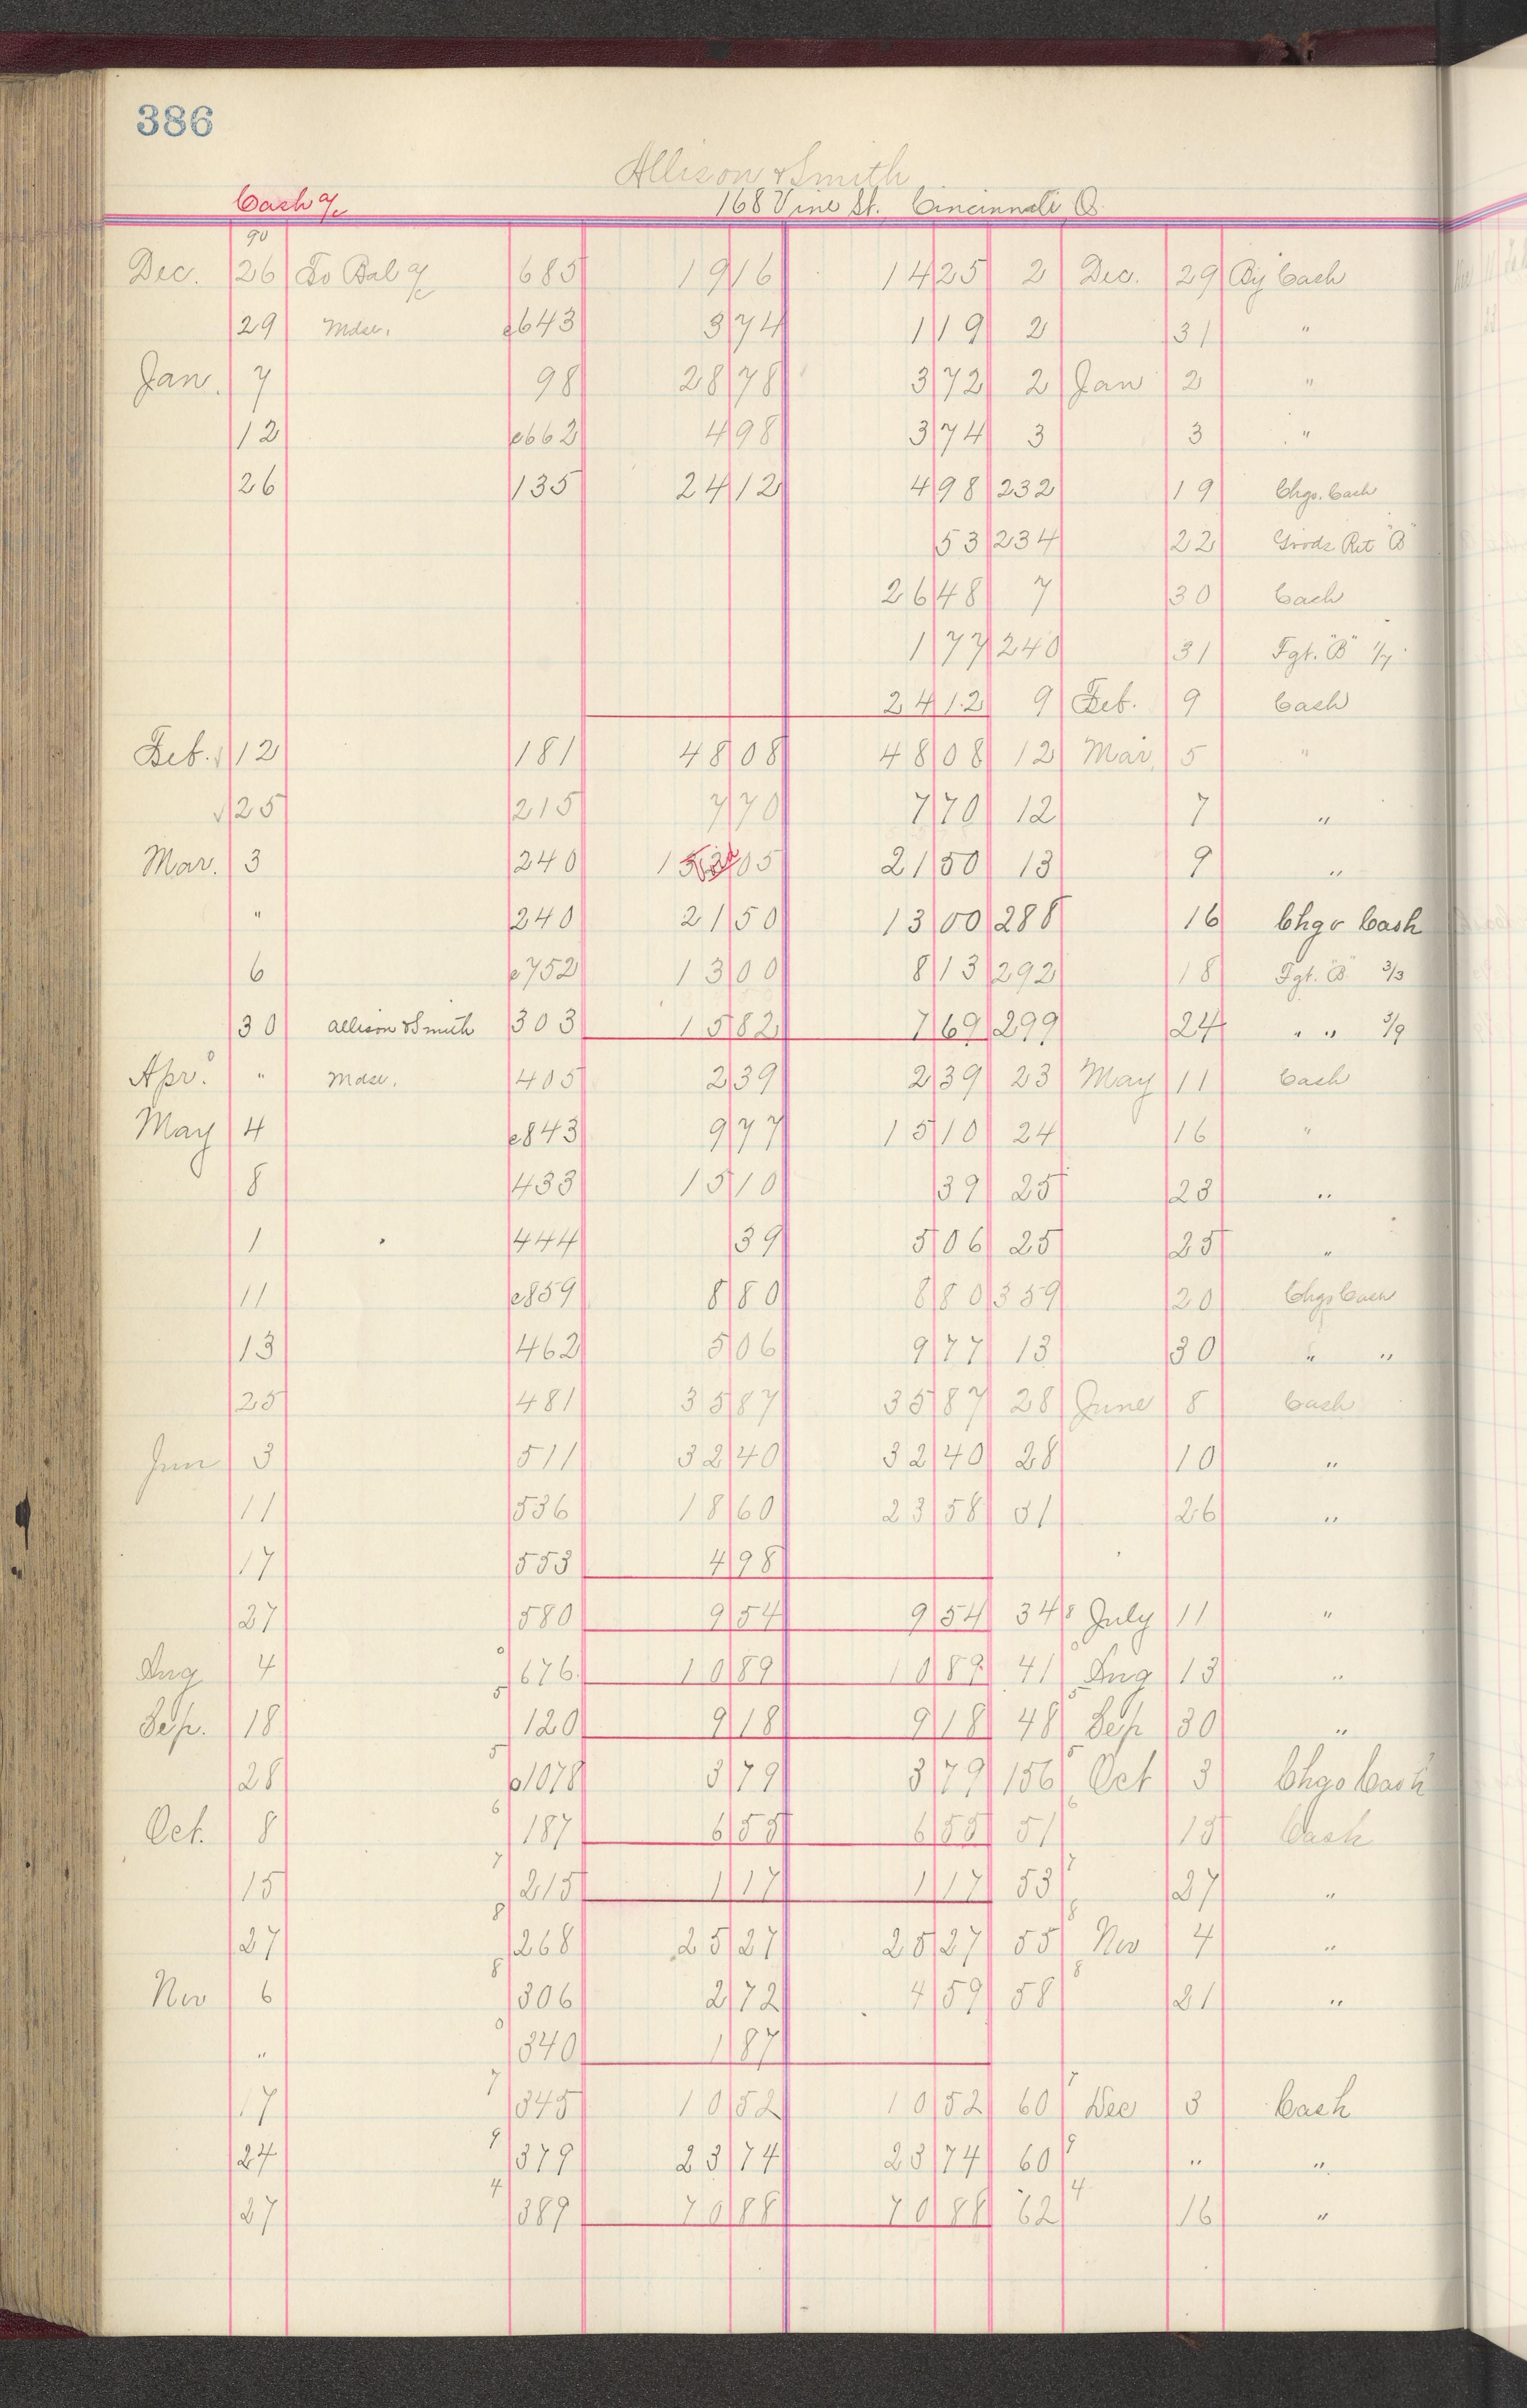 386
Allison & Smith
Cash a/c 168 Vine St. Cincinnati, O.
90
Dec. 26 To Bal a/c 685 19 16 14 25 2 Dec. 29 By Cash
29 Mdse. c643 3 74 1 19 2 31 "
Jan. 7 98 28 78 3 72 2 Jan 2 "
12 c662 4 98 3 74 3 3 "
26 135 24 12 4 98 232 19 Chgo. Cash
53 234 22 Goods Ret "B"
26 48 7 30 Cash
1 77 240 31 Fgt. "B" 1/7
24 12 9 Feb. 9 Cash
Feb. √ 12 181 48 08 48 08 12 Mar. 5 "
√ 25 215 7 70 7 70 12 7 "
Mar. 3 240 Void 05 21 50 13 9 "
" 240 21 50 13 00 288 16 Chgo Cash
6 c752 13 00 8 13 292 18 Fgt. "B" 3/3
30 Allison & Smith 303 15 82 7 69 299 24 " " 3/9
Apr. " Mdse. 405 2 39 2 39 23 May 11 Cash
May 4 c843 9 77 15 10 24 16 "
8 433 15 10 39 25 23 "
1 444 39 5 06 25 25 "
11 c859 8 80 8 80 359 20 Chgo Cash
13 462 5 06 9 77 13 30 " "
25 481 35 87 35 87 28 June 8 Cash
Jun 3 511 32 40 32 40 28 10 "
11 536 18 60 23 58 31 26 "
17 553 4 98
27 580 9 54 9 54 34 8 July 11 "
Aug 4 0 676 10 89 10 89 41 0 Aug 13 "
Sep. 18 5 120 9 18 9 18 48 5 Sep 30 "
28 5 c1078 3 79 3 79 156 5 Oct 3 Chgo Cash
Oct. 8 6 187 6 55 6 55 51 6 15 Cash
15 7 215 1 17 1 17 53 7 27 "
27 8 268 25 27 25 27 55 8 Nov 4 "
Nov 6 8 306 2 72 4 59 58 8 21 "
" 0 340 1 87
17 7 345 10 52 10 52 60 7 Dec 3 Cash
24 9 379 23 74 23 74 60 9 " "
27 4 389 70 88 70 88 62 4 16 "